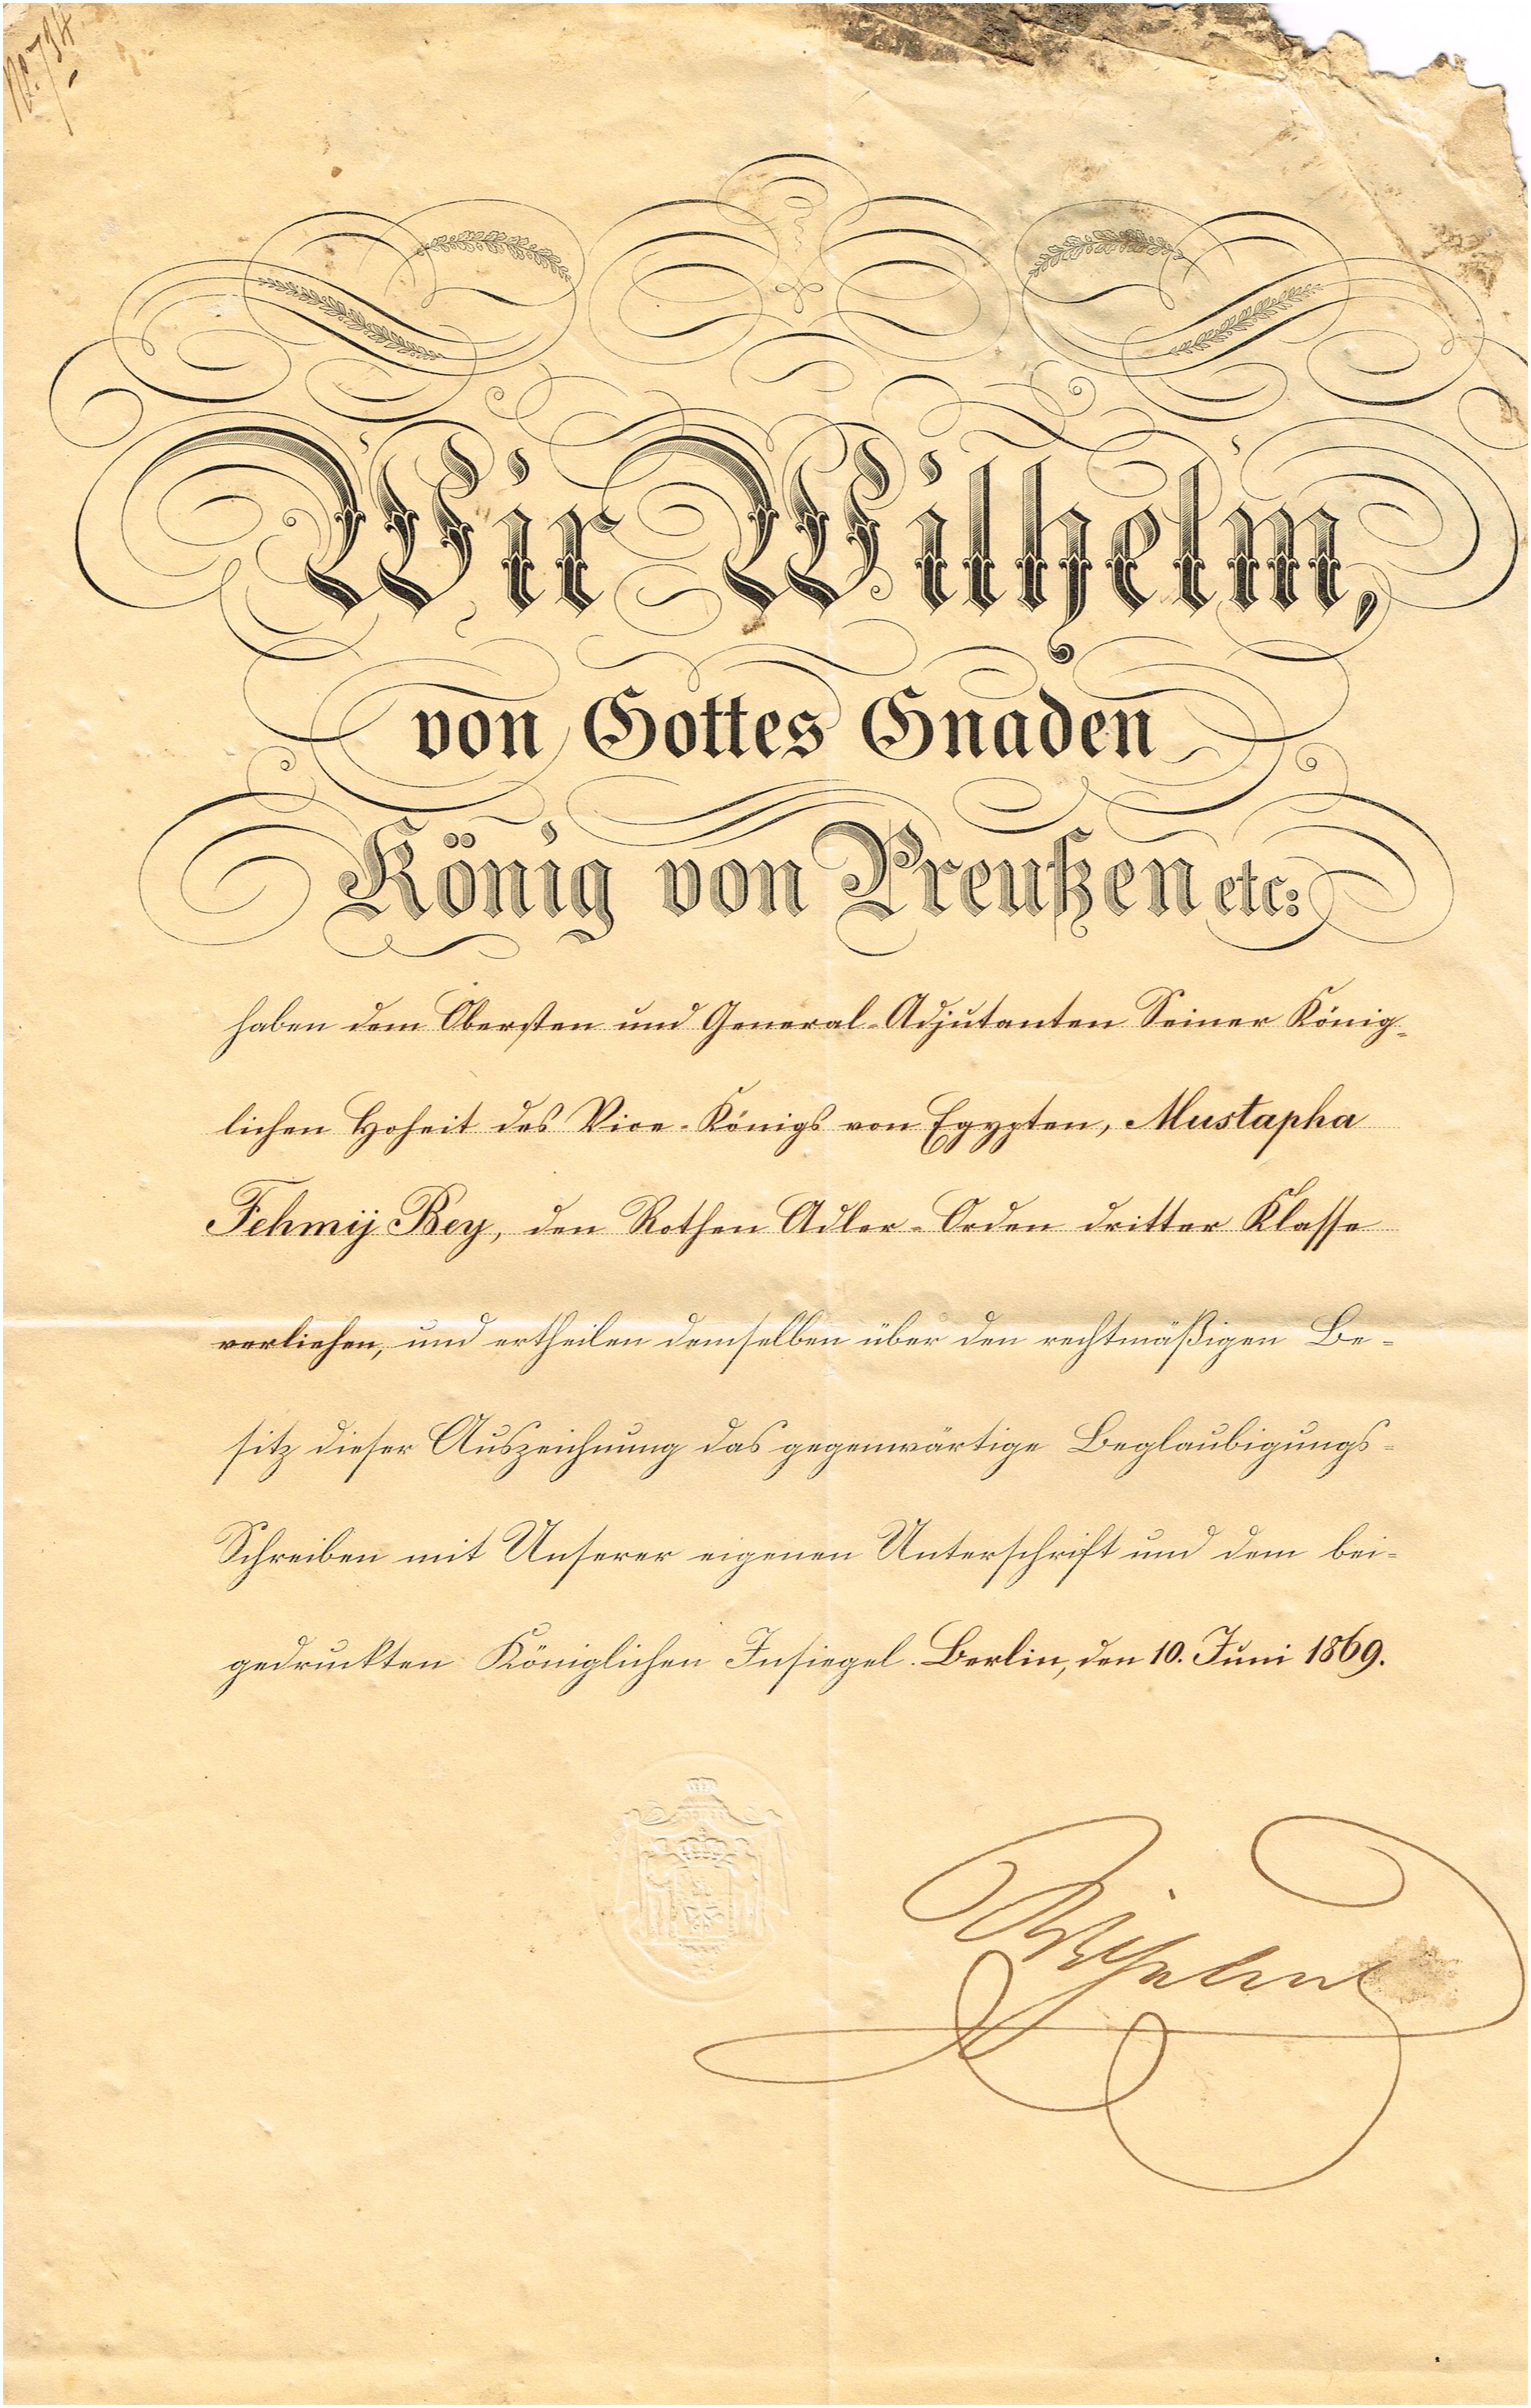 No. 794
Wir Wilhelm,
von Gottes Gnaden
König von Preußen etc:
haben dem Obersten und General-Adjutanten Seiner König-
lichen Hoheit des Vice-Königs von Egypten, Mustapha
Fehmij Bey, den Rothen Adler-Orden dritter Klasse
verliehen, und ertheilen demselben über den rechtmäßigen Be-
sitz dieser Auszeichnung das gegenwärtige Beglaubigungs-
Schreiben mit Unserer eigenen Unterschrift und dem bei-
gedruckten Königlichen Insiegel. Berlin, den 10. Juni 1869.
Wilhelm